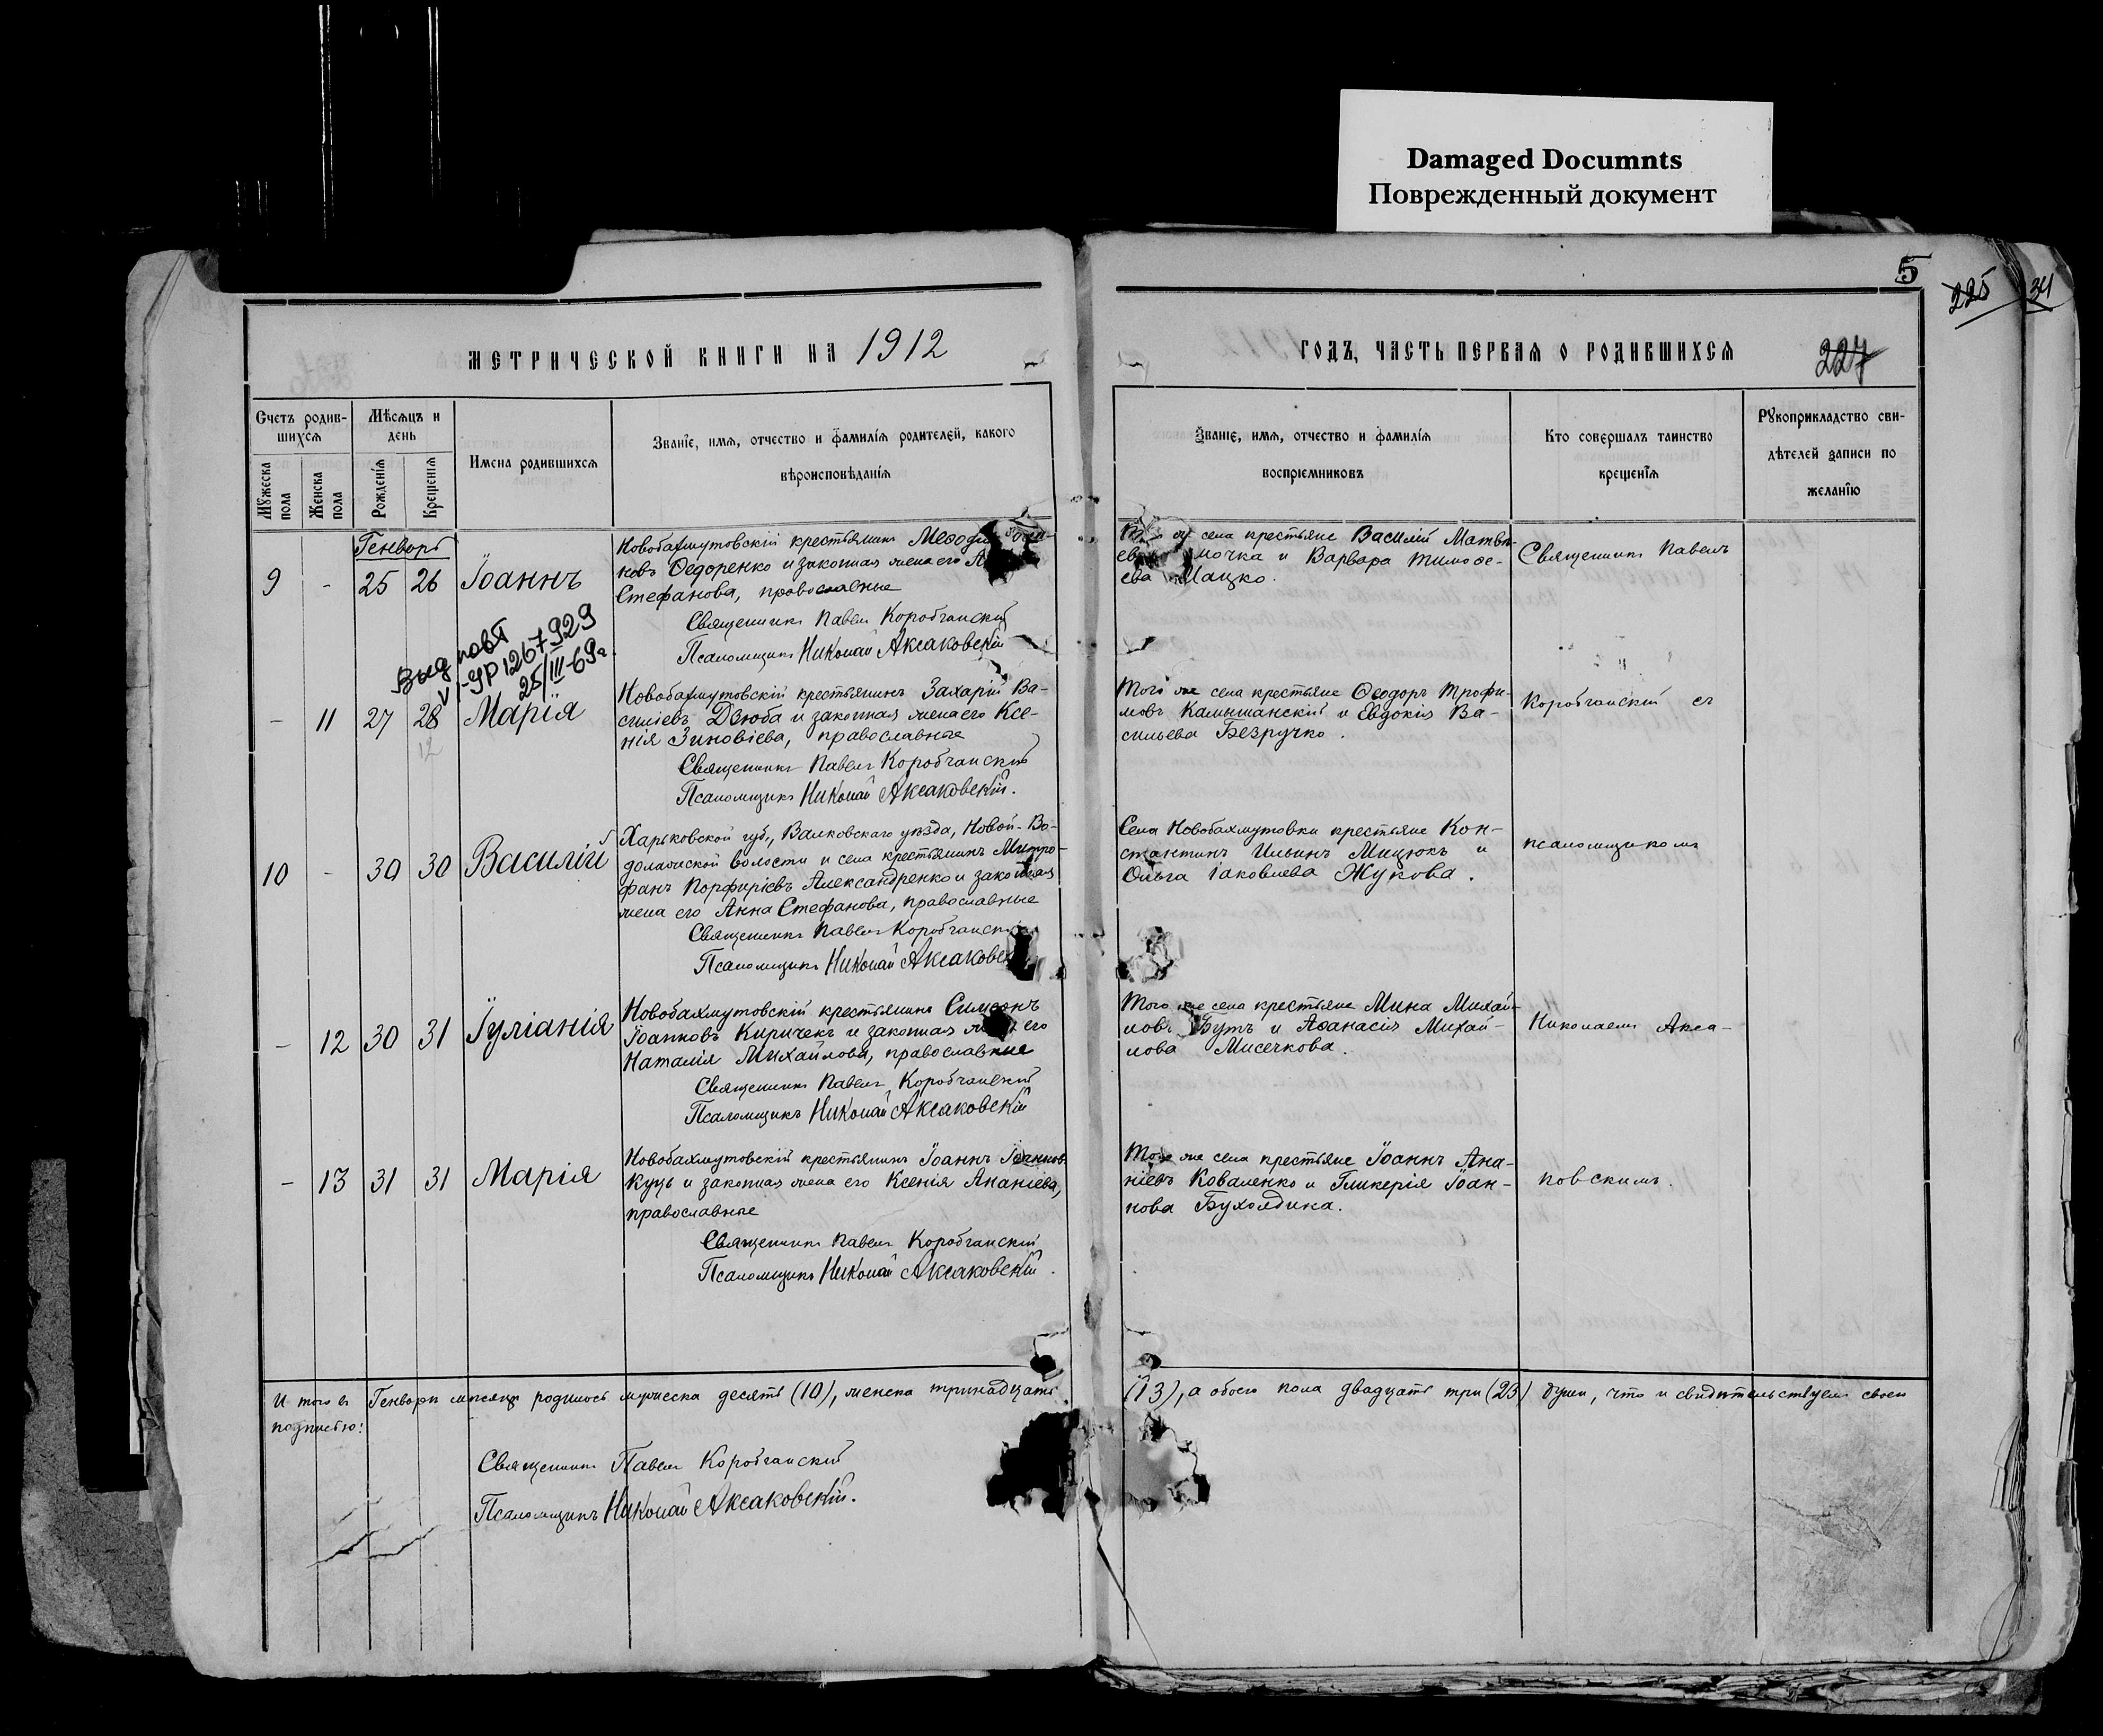 Damaged Documnts
Поврежденный документ
5
225
34
МЕТРИЧЕСКОЙ КНИГИ НА 1912
ГОДЪ, ЧАСТЬ ПЕРВАЯ О РОДИВШИХСЯ
227
Счетъ родив-
шихся
Мужеска пола
Женска пола
Мѣсяцъ и
день
Рожденія
Крещенія
Имена родившихся
Званіе, имя, отчество и фамилія родителей, какого
вѣроисповѣданія
Званіе, имя, отчество и фамилія
воспріемниковъ
Кто совершалъ таинство
крещенія
Рукоприкладство сви-
дѣтелей записи по
желанію
Генварь
9 - 25 26 Іоаннъ
Новобахмутовскій крестьянинъ
новъ Ѳедоренко и законная жена его
Стефанова, православные
Священникъ Павелъ Коробчанскій
Псаломщикъ Николай Аксаковскій
села крестьяне Василій Матвѣ-
и Варвара Тимоѳе-
ева Мацко.
Священникъ Павелъ
Выд повт
V-ЯР 1267929
25/III-69г.
- 11 27 28 Марія
12
Новобахмутовскій крестьянинъ Захарій Ва-
силіевъ Дзюба и законная жена его Ксе-
нія Зиновіева, православные
Священникъ Павелъ Коробчанскій
Псаломщикъ Николай Аксаковскій.
Того же села крестьяне Ѳеодоръ Трофи-
мовъ Камышанскій и Евдокія Ва-
сильева Безручко.
Коробчанскій съ
10 - 30 30 Василій
Харьковской губ., Валковскаго уѣзда, Новой-Во-
долажской волости и села крестьянинъ Митро-
фанъ Порфиріевъ Александренко и законная
жена его Анна Стефанова, православные
Священникъ Павелъ Коробчанскій
Псаломщикъ Николай
Села Новобахмутовки крестьяне Кон-
стантинъ Ильинъ Мицюкъ и
Ольга Іаковлева Жукова.
псаломщикомъ
- 12 30 31 Іуліанія
Новобахмутовскій крестьянинъ Симеонъ
Іоанновъ Киричекъ и законная жена его
Наталія Михайлова, православные
Священникъ Павелъ Коробчанскій
Псаломщикъ Николай Аксаковскій
Того же села крестьяне Мина Михай-
ловъ Бутъ и Аѳанасія Михай-
лова Мисечкова.
Николаемъ Акса-
- 13 31 31 Марія
Новобахмутовскій крестьянинъ Іоаннъ Іоанновъ
Куць и законная жена его Ксенія Ананіева,
православные
Священникъ Павелъ Коробчанскій
Псаломщикъ Николай Аксаковскій.
Того же села крестьяне Іоаннъ Ана-
ніевъ Коваленко и Гликерія Іоан-
нова Бухолдина.
ковскимъ.
И того въ Генварѣ мѣсяцѣ родилось мужеска десять (10), женска тринадцать (13), а обоего пола двадцать три (23) души, что и свидѣтельствуемъ своею
подписью:
Священникъ Павелъ Коробчанскій
Псаломщикъ Николай Аксаковскій.